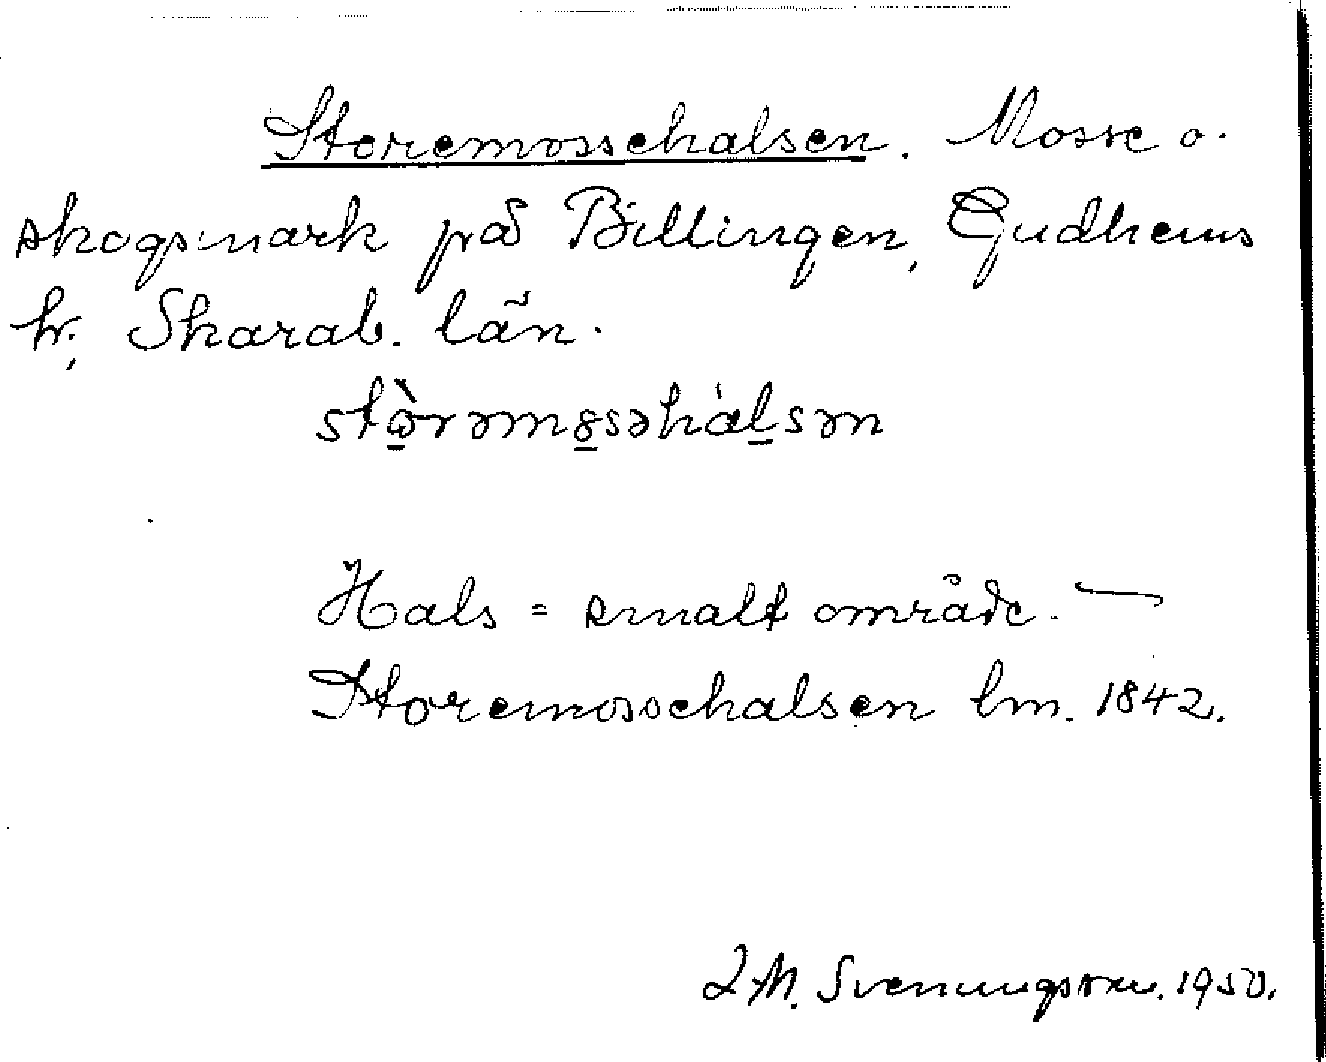 Storemossehalsen. Mosse o.
skogsmark på Billingen, Gudhems
hr, Skarab. län.
stòrəmossəhàlsən
Hals = smalt område. —
Storemossehalsen lm. 1842.
L M. Svenungsson. 1950.